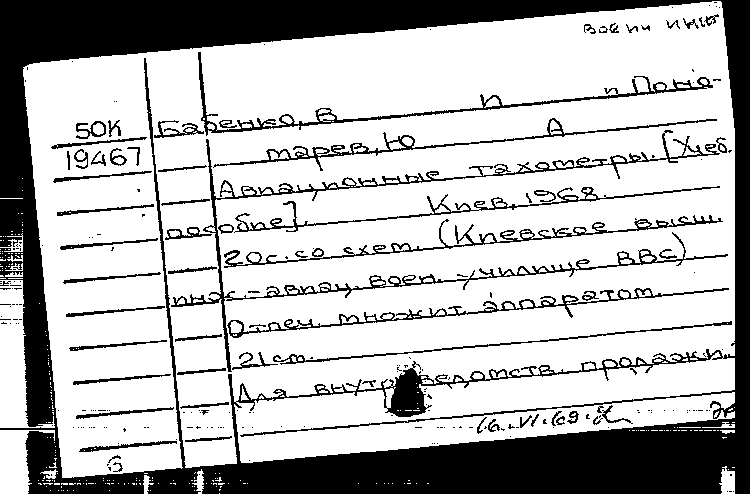 воен инж
50К Бабенко, В П и Поно-
19467 марев, Ю А
Авиационные тахометры. [Учеб.
пособие]. Киев, 1968.
20с. со схем. (Киевское высш.
инж.-авиац. воен. училище ВВС)
Отпеч. множит. аппаратом.
21 см.
Для внутриведомств. продажи.
16.VI.69.
6